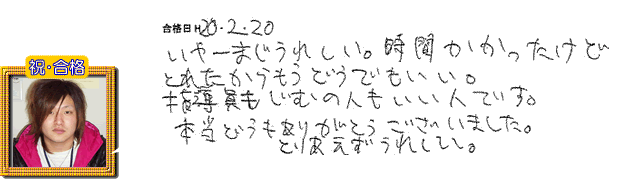 祝・合格
合格日 H20.2.20
いやーまじうれしい。時間かかったけど
とれたからもうどうでもいい。
指導員もじむの人もいい人です。
本当どうもありがとうございました。
とりあえずうれしい。